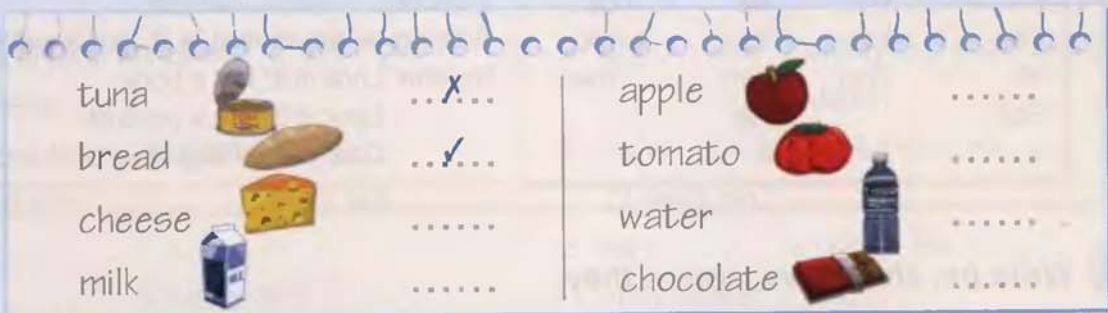 tuna ...✗...
bread ...✓...
cheese ......
milk ......
apple ......
tomato ......
water ......
chocolate ......